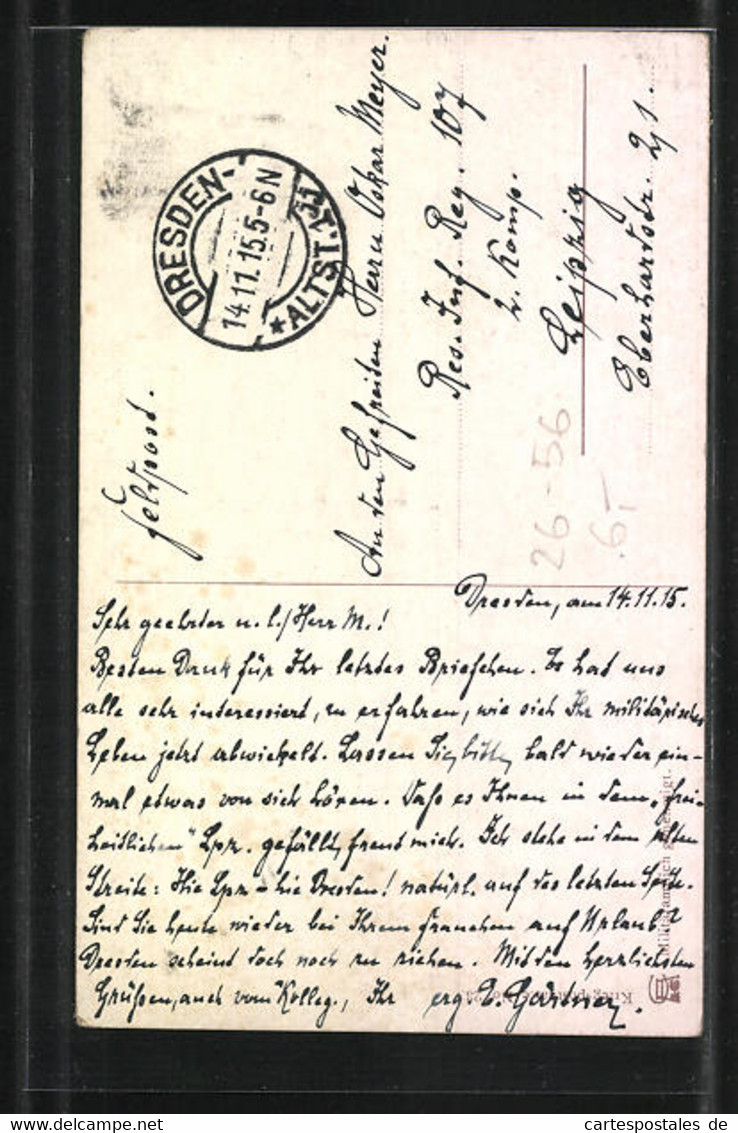 Feldpost.
DRESDEN-
14.11.15.5-6N
*ALTST.1
An den Gefreiten Herrn Oskar Meyer.
Res. Inf. Reg. 107
2. Komp.
Leipzig
Eberhardstr.
26-56
6,-
Dresden, am 14.11.15.
Sehr geehrter u. l. Herr M.!
Besten Dank für Ihr letztes Briefchen. Es hat uns
alle sehr interessiert, zu erfahren, wie sich Ihr militärisches
Leben jetzt abwickelt. Lassen Sie, bitte, bald wieder ein-
mal etwas von sich hören. Daß es Ihnen in dem „frei-
heitlichen" Lpz. gefällt, freut mich. Ich stehe in dem alten
Streite: Hie Lpz – hie Dresden! natürl. auf der letzten Seite.
Sind Sie heute wieder bei Ihrem Frauchen auf Urlaub?
Dresden scheint doch noch zu ziehen. Mit den herzlichsten
Grüßen, auch vom Kolleg., Ihr erg. E. Gärtner.
cartespostales de